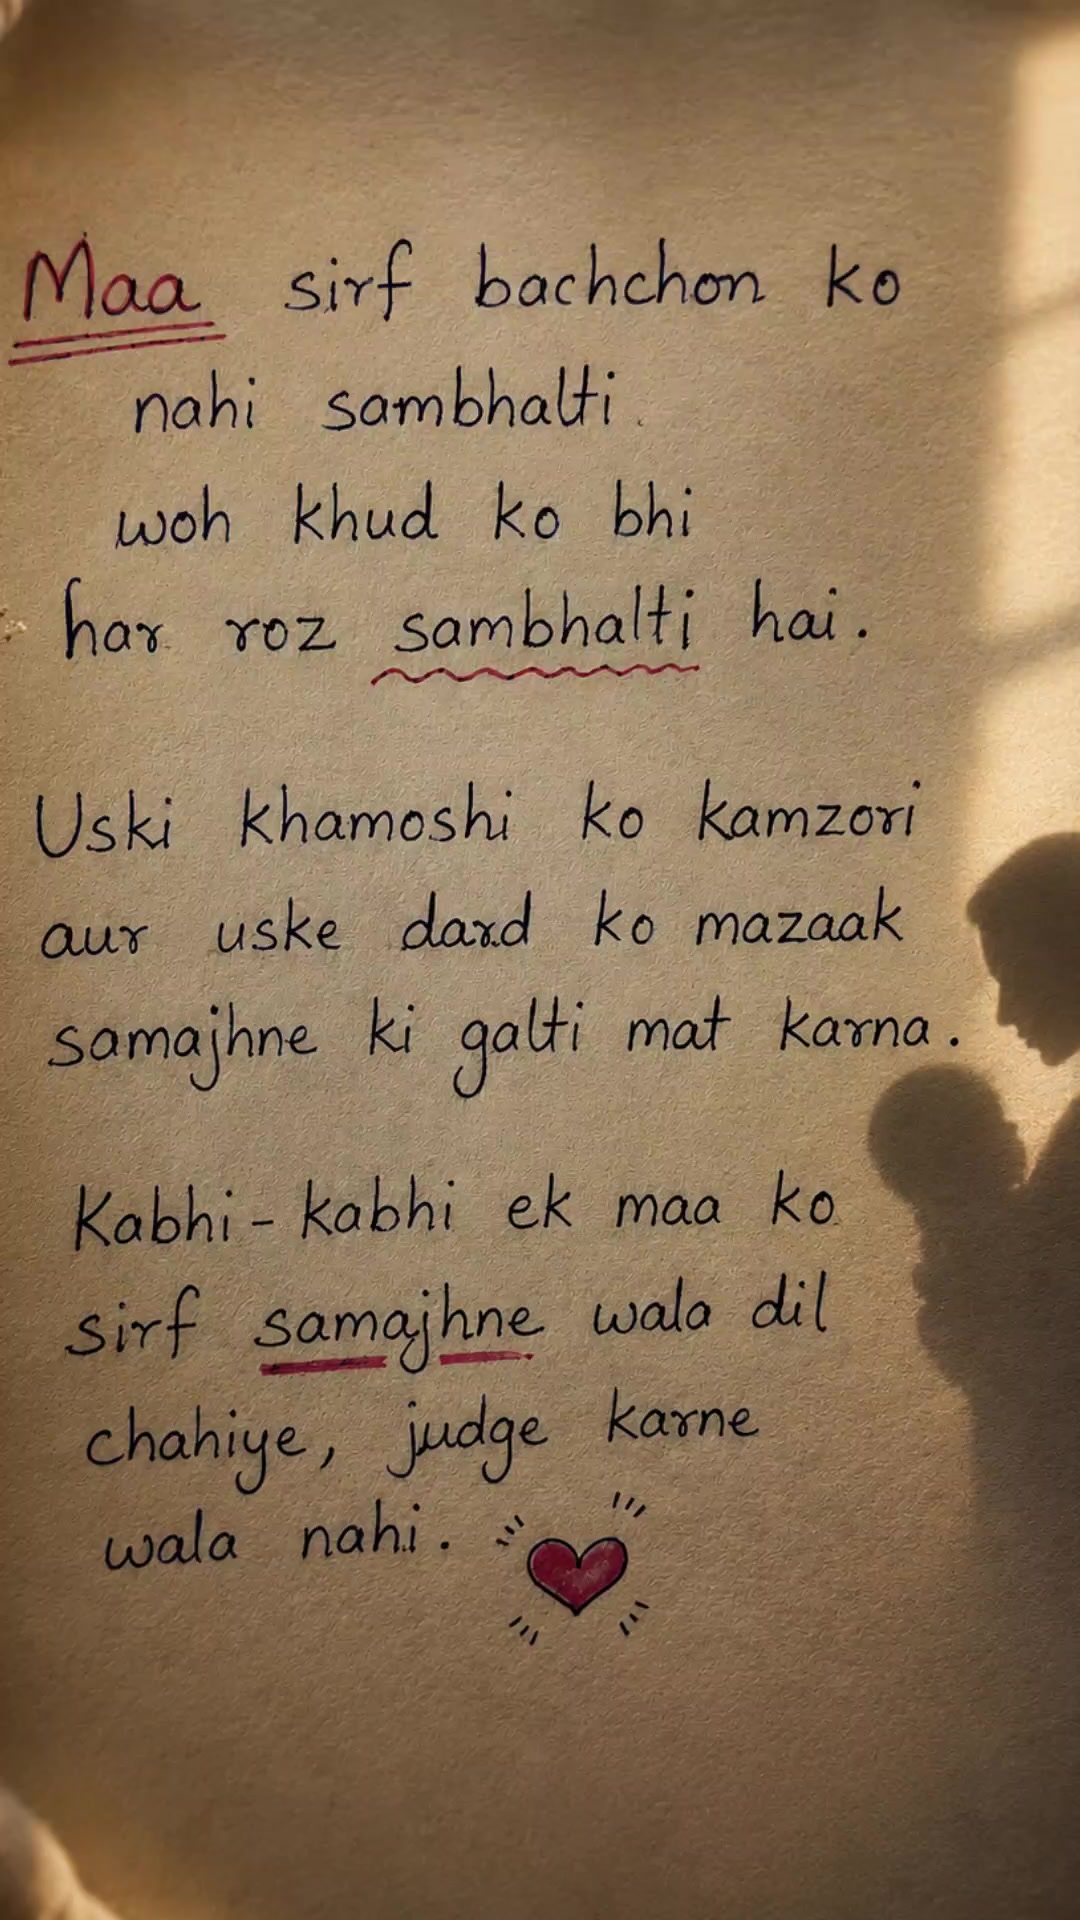 Maa sirf bachchon ko
nahi sambhalti.
woh khud ko bhi
har roz sambhalti hai.
Uski khamoshi ko kamzori
aur uske dard ko mazaak
samajhne ki galti mat karna.
Kabhi-kabhi ek maa ko
sirf samajhne wala dil
chahiye, judge karne
wala nahi.